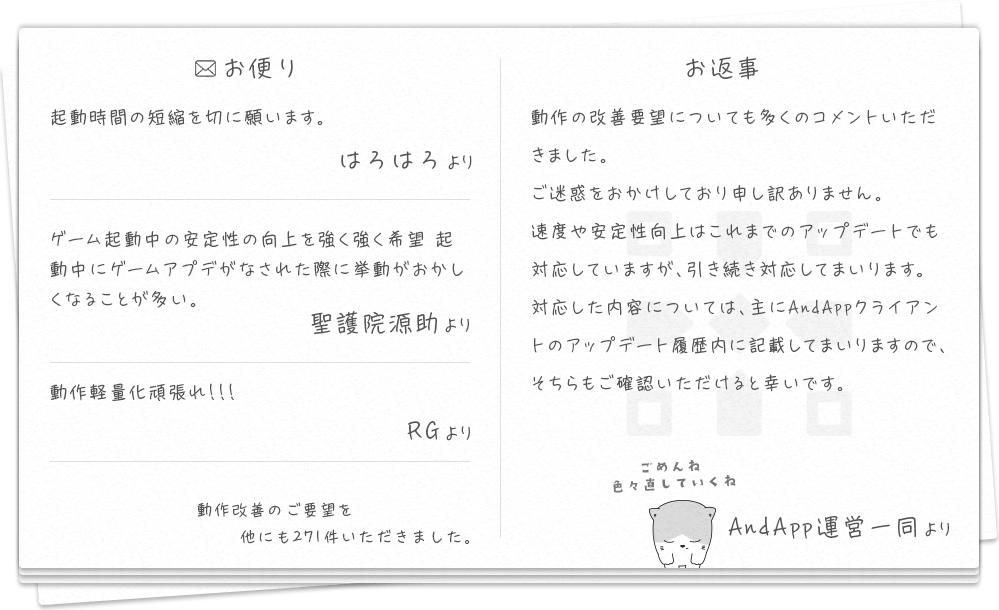 お便り
起動時間の短縮を切に願います。
はろはろより
ゲーム起動中の安定性の向上を強く強く希望 起
動中にゲームアプデがなされた際に挙動がおかし
くなることが多い。
聖護院源助より
動作軽量化頑張れ!!!
RGより
動作改善のご要望を
他にも271件いただきました。
お返事
動作の改善要望についても多くのコメントいただ
きました。
ご迷惑をおかけしており申し訳ありません。
速度や安定性向上はこれまでのアップデートでも
対応していますが、引き続き対応してまいります。
対応した内容については、主にAndAppクライアン
トのアップデート履歴内に記載してまいりますので、
そちらもご確認いただけると幸いです。
ごめんね
色々直していくね
AndApp運営一同より